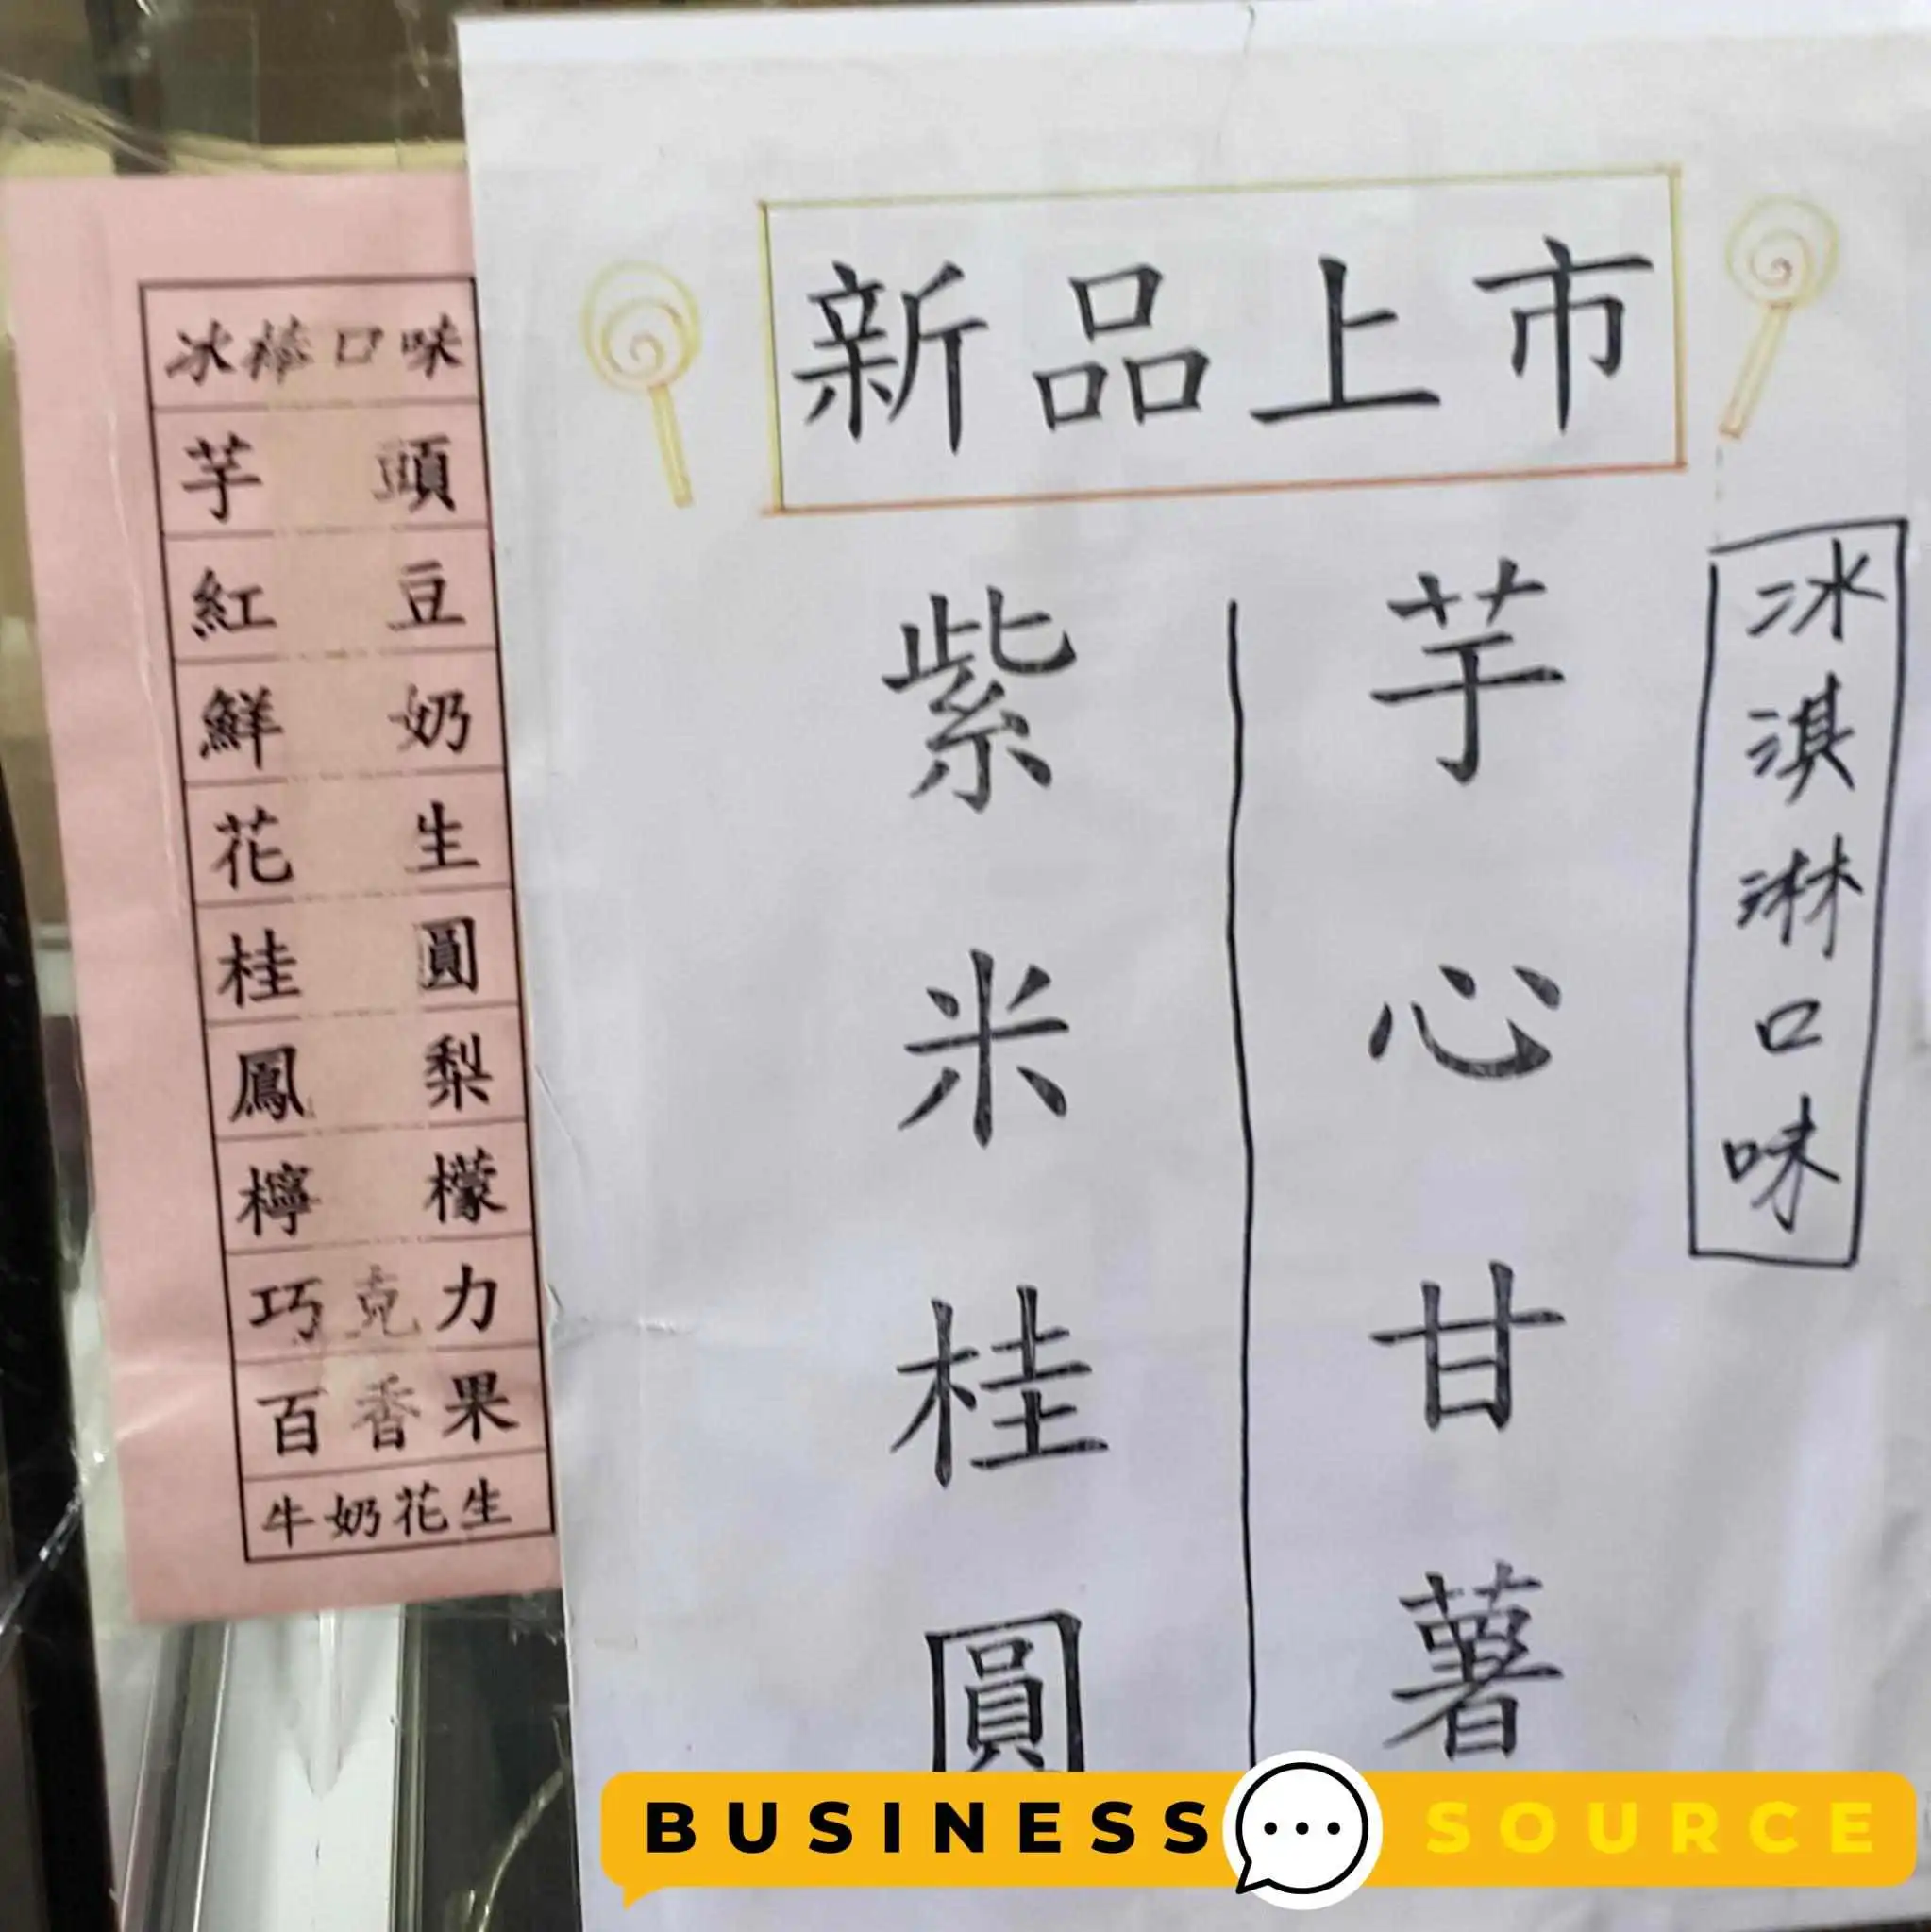 冰棒口味
芋頭
紅豆
鮮奶
花生
桂圓
鳳梨
檸檬
巧克力
百香果
牛奶花生
新品上市
冰淇淋口味
芋心甘薯
紫米桂圓
BUSINESS SOURCE